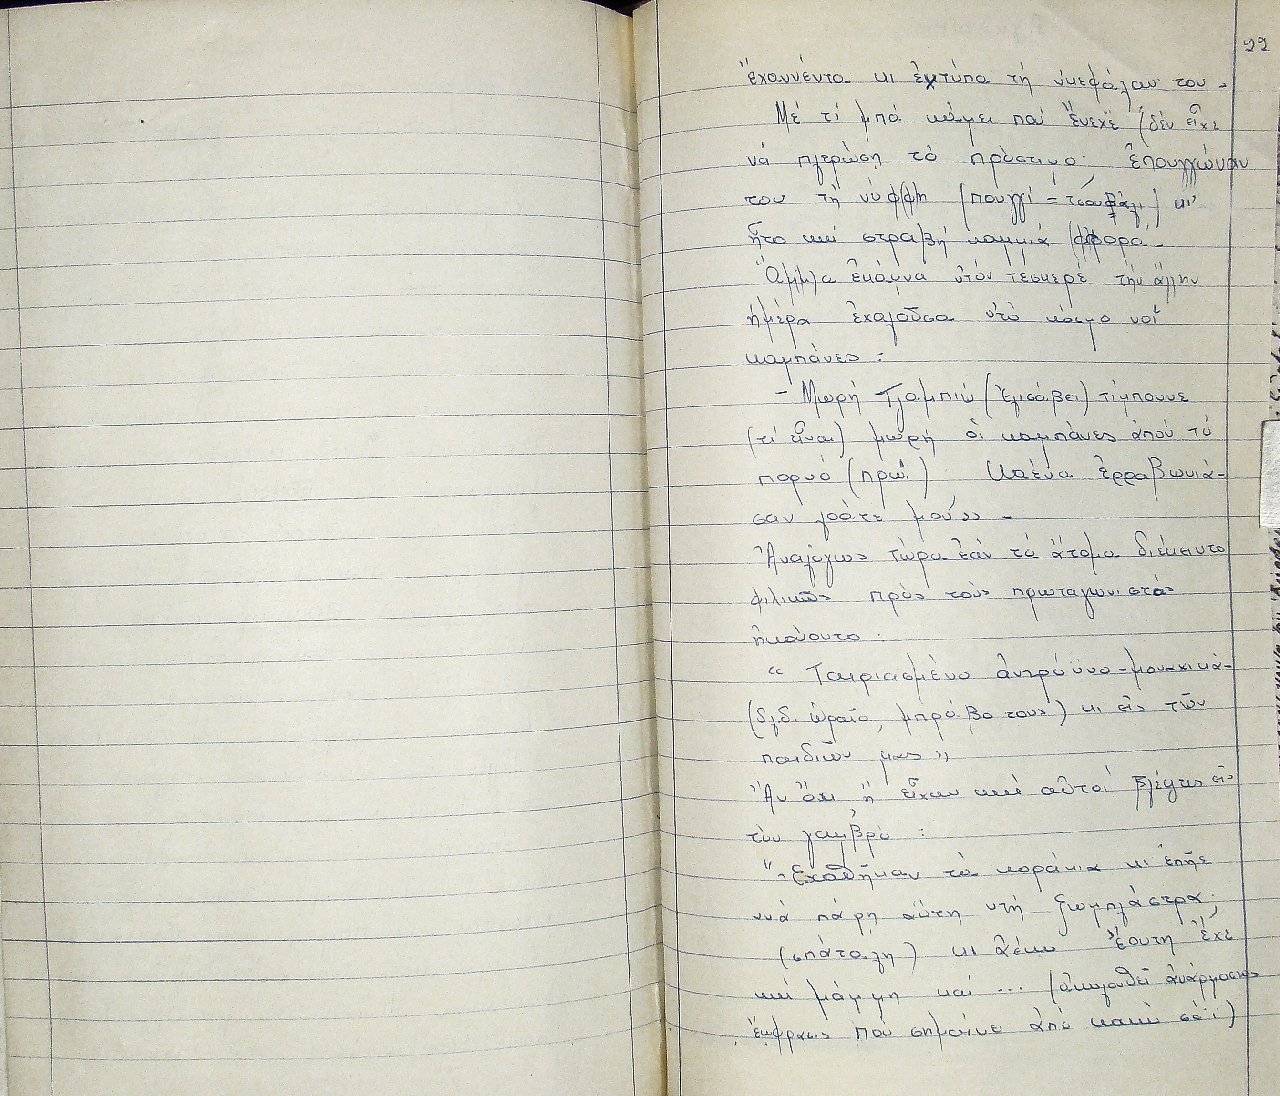 22
ἔχαννέντο κι ἐκτύπα τή νκεφάλαν του.
Μέ τί μπά κάμει ποὺ ἔνεχε (δέν εἶχε
νά πλερώση τὸ πρόστιμο. ἐπουγγώναν
του τὴ νύφφη (πουγγί = τσουβάλι) κι'
ἦτο καί στραβή καμμιά φφορά.
Ἄμμα ἐκάννα ὑτόν τέσκερε τήν ἄλλην
ἡμέρα ἐχαλοῦσα ὑτό κόσμο νοἱ
καμπάνες:
- Μωρή Τζαμπιώ (Ἐλισάβει) τίμπουνε
(τί εἶναι) μωρή οἱ καμπάνες ἀπού τό
πορνό (πρωΐ) Κἀένα ἐρραβωνιά-
σαν γοάτε μου»-
Ἀναλόγως τώρα ἐάν τά ἄτομα διέκειντο
φιλικῶς πρός τούς πρωταγωνιστάς
ἠκούοντο:
“ Ταιριασμένο ἀντρόϋνο-μου-χικιά-
(δλδ. ὡραῖο, μπράβο τους) κι εἰς τῶν
παιδιῶν μας »
Ἄν ὄχι ἤ εἶχαν καί αὐτοί βλέψεις εἰς
τόν γαμβρό :
“-Ἐχαθῆκαν τά κοράκια κι ἐπῆε
ννά πάρη αὔτη ὑτή ξωμπλάστρα;
(σπάταλη) κι λέκω ἔουτη ἔχε
καί μάμμη καί ... (ἀκολουθεῖ ἀνάρμοστος
ἔκφρασις πού σημαίνε ἀπό κακό σόι)